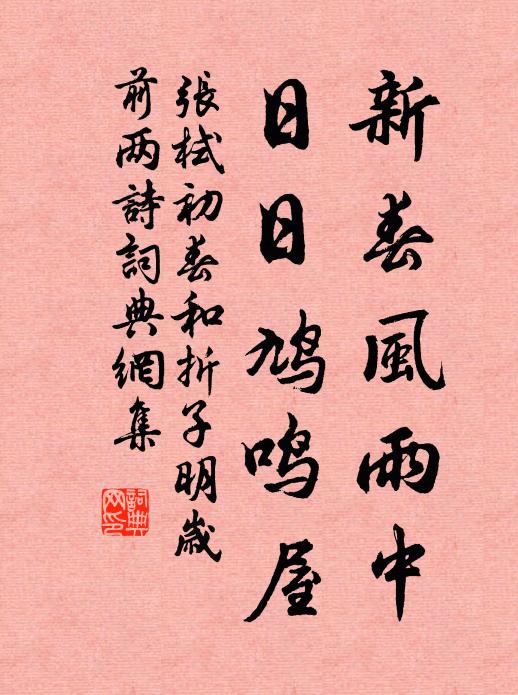 新春風雨中
日日鸠鸣屋
張栻初春和折子明歲
前两詩詞典網集
詞典
网印